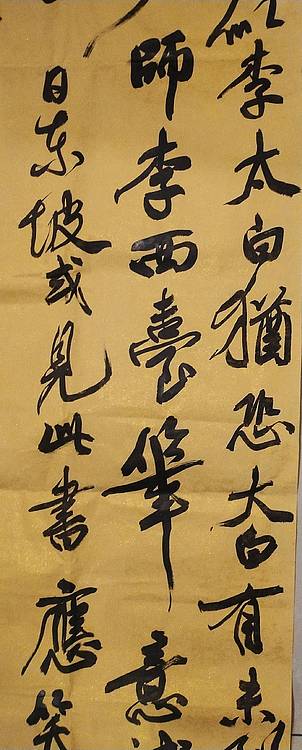 似李太白猶恐太白有未
師李西臺筆意
日東坡或見此書應笑